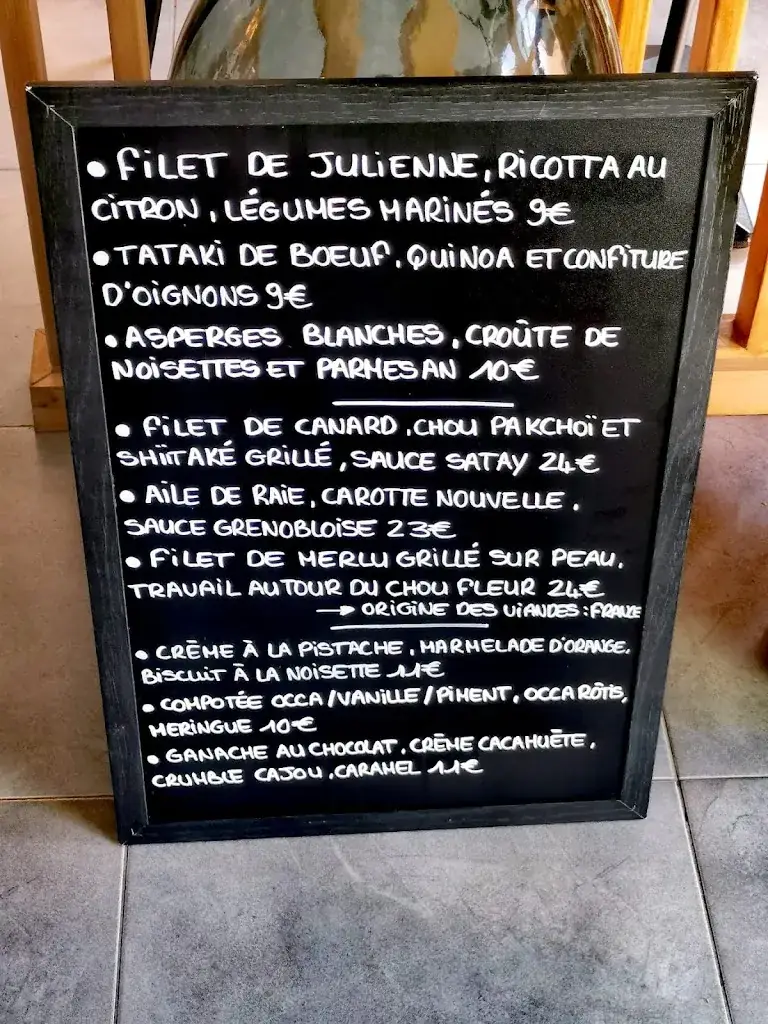 • FILET DE JULIENNE, RICOTTA AU
CITRON, LÉGUMES MARINÉS 9€
• TATAKI DE BOEUF, QUINOA ET CONFITURE
D'OIGNONS 9€
• ASPERGES BLANCHES, CROÛTE DE
NOISETTES ET PARMESAN 10€
• FILET DE CANARD, CHOU PAKCHOÏ ET
SHIITAKÉ GRILLÉ, SAUCE SATAY 24€
• AILE DE RAIE, CAROTTE NOUVELLE,
SAUCE GRENOBLOISE 23€
• FILET DE MERLU GRILLÉ SUR PEAU,
TRAVAIL AUTOUR DU CHOU FLEUR 24€
→ ORIGINE DES VIANDES : FRANCE
• CRÈME À LA PISTACHE, MARMELADE D'ORANGE,
BISCUIT À LA NOISETTE 11€
• COMPOTÉE OCCA/VANILLE/PIMENT, OCCA RÔTIS,
MERINGUE 10€
• GANACHE AU CHOCOLAT, CRÈME CACAHUÈTE,
CRUMBLE CAJOU, CARAMEL 11€